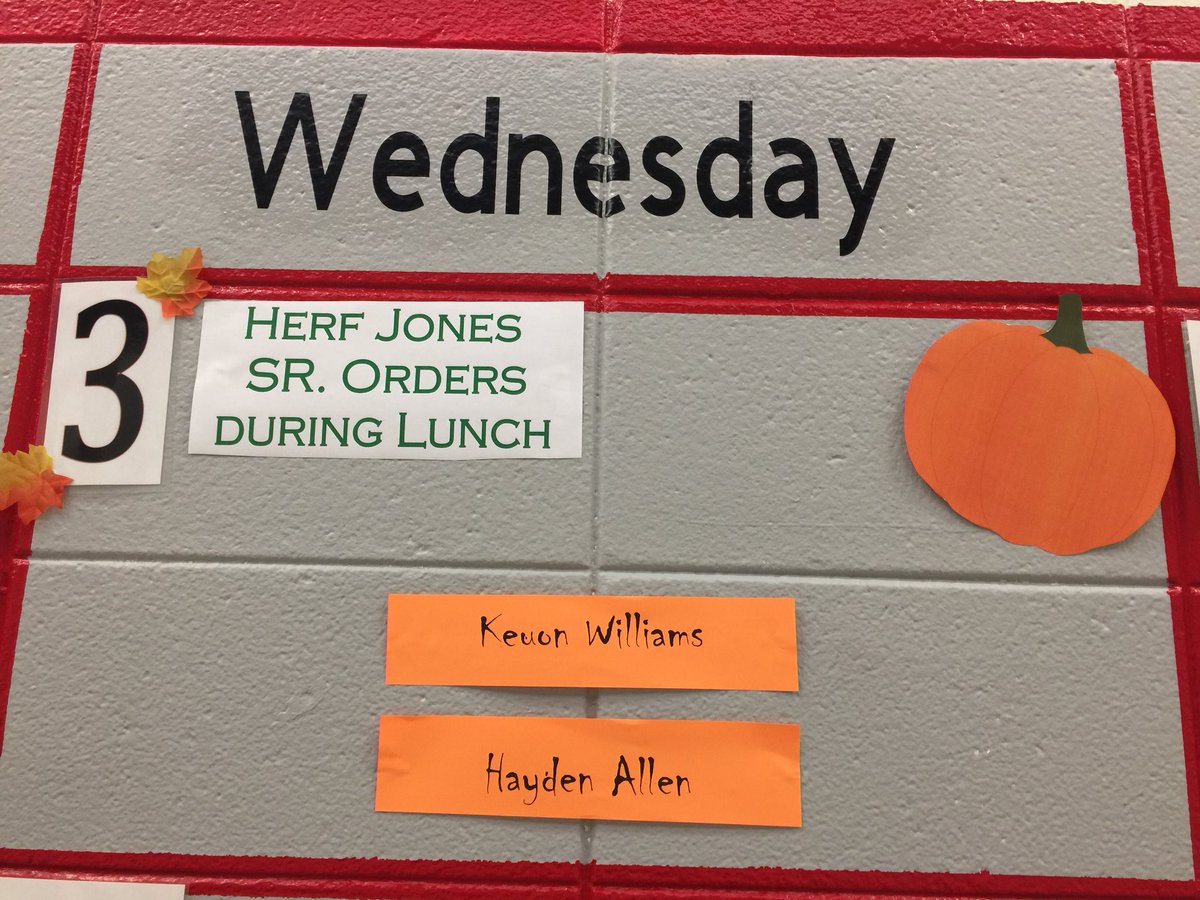 Wednesday
3
HERF JONES
SR. ORDERS
DURING LUNCH
Keuon Williams
Hayden Allen